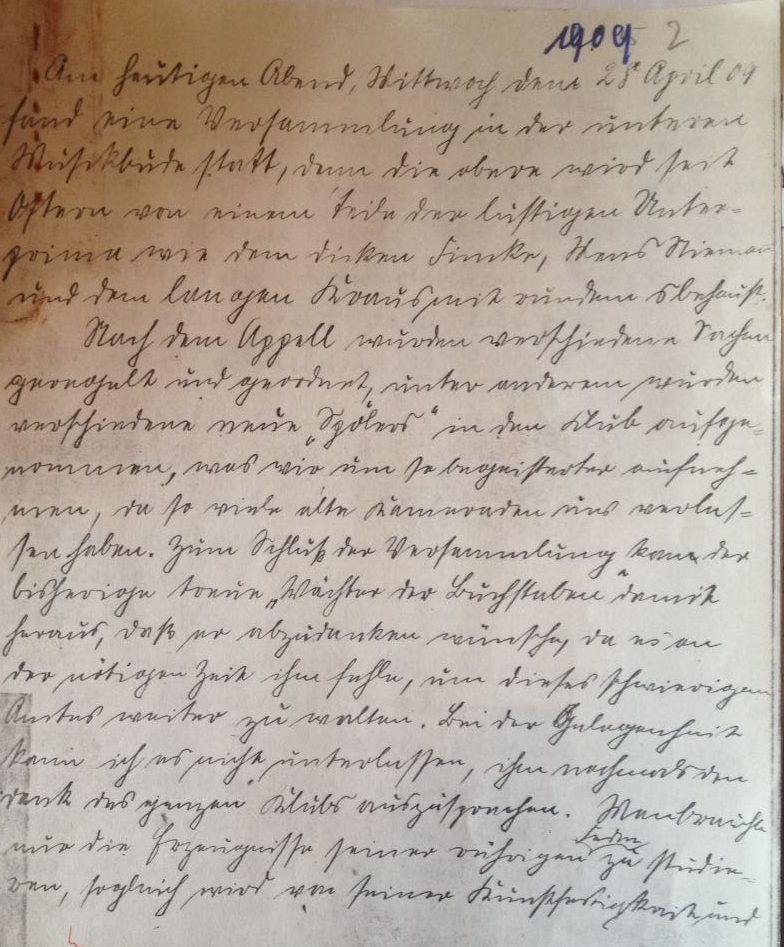 1909 2
Am heutigen Abend, Mittwoch den 28. April 09
fand eine Versammlung in der unteren
Musikbude statt, denn die obere wird seit
Ostern von einem Teile der lustigen Unter-
prima wie dem dicken Fincke, Niemann
und dem langen Kraus mit behaust.
Nach dem Appell wurden verschiedene Sachen
geregelt und geordnet, unter anderem wurden
verschiedene neue „Spölers“ in den Klub aufge-
nommen, was wir um so begeisterter aufneh-
men, da so viele alte Kameraden uns verlas-
sen haben. Zum Schluß der Versammlung kam der
bisherige treue „Wächter der Buchstaben“ damit
heraus, daß er abzudanken wünsche, da es an
der nötigen Zeit ihm fehle, um dieses schwierigen
Amtes weiter zu walten. Bei der Gelegenheit
kann ich es nicht unterlassen, ihm nochmals den
Dank des ganzen Klubs auszusprechen. Man brauicht
Feder
nur die Erzeugnisse seiner rührigen zu studie-
ren, sogleich wird von seiner Kunstfertigkeit und